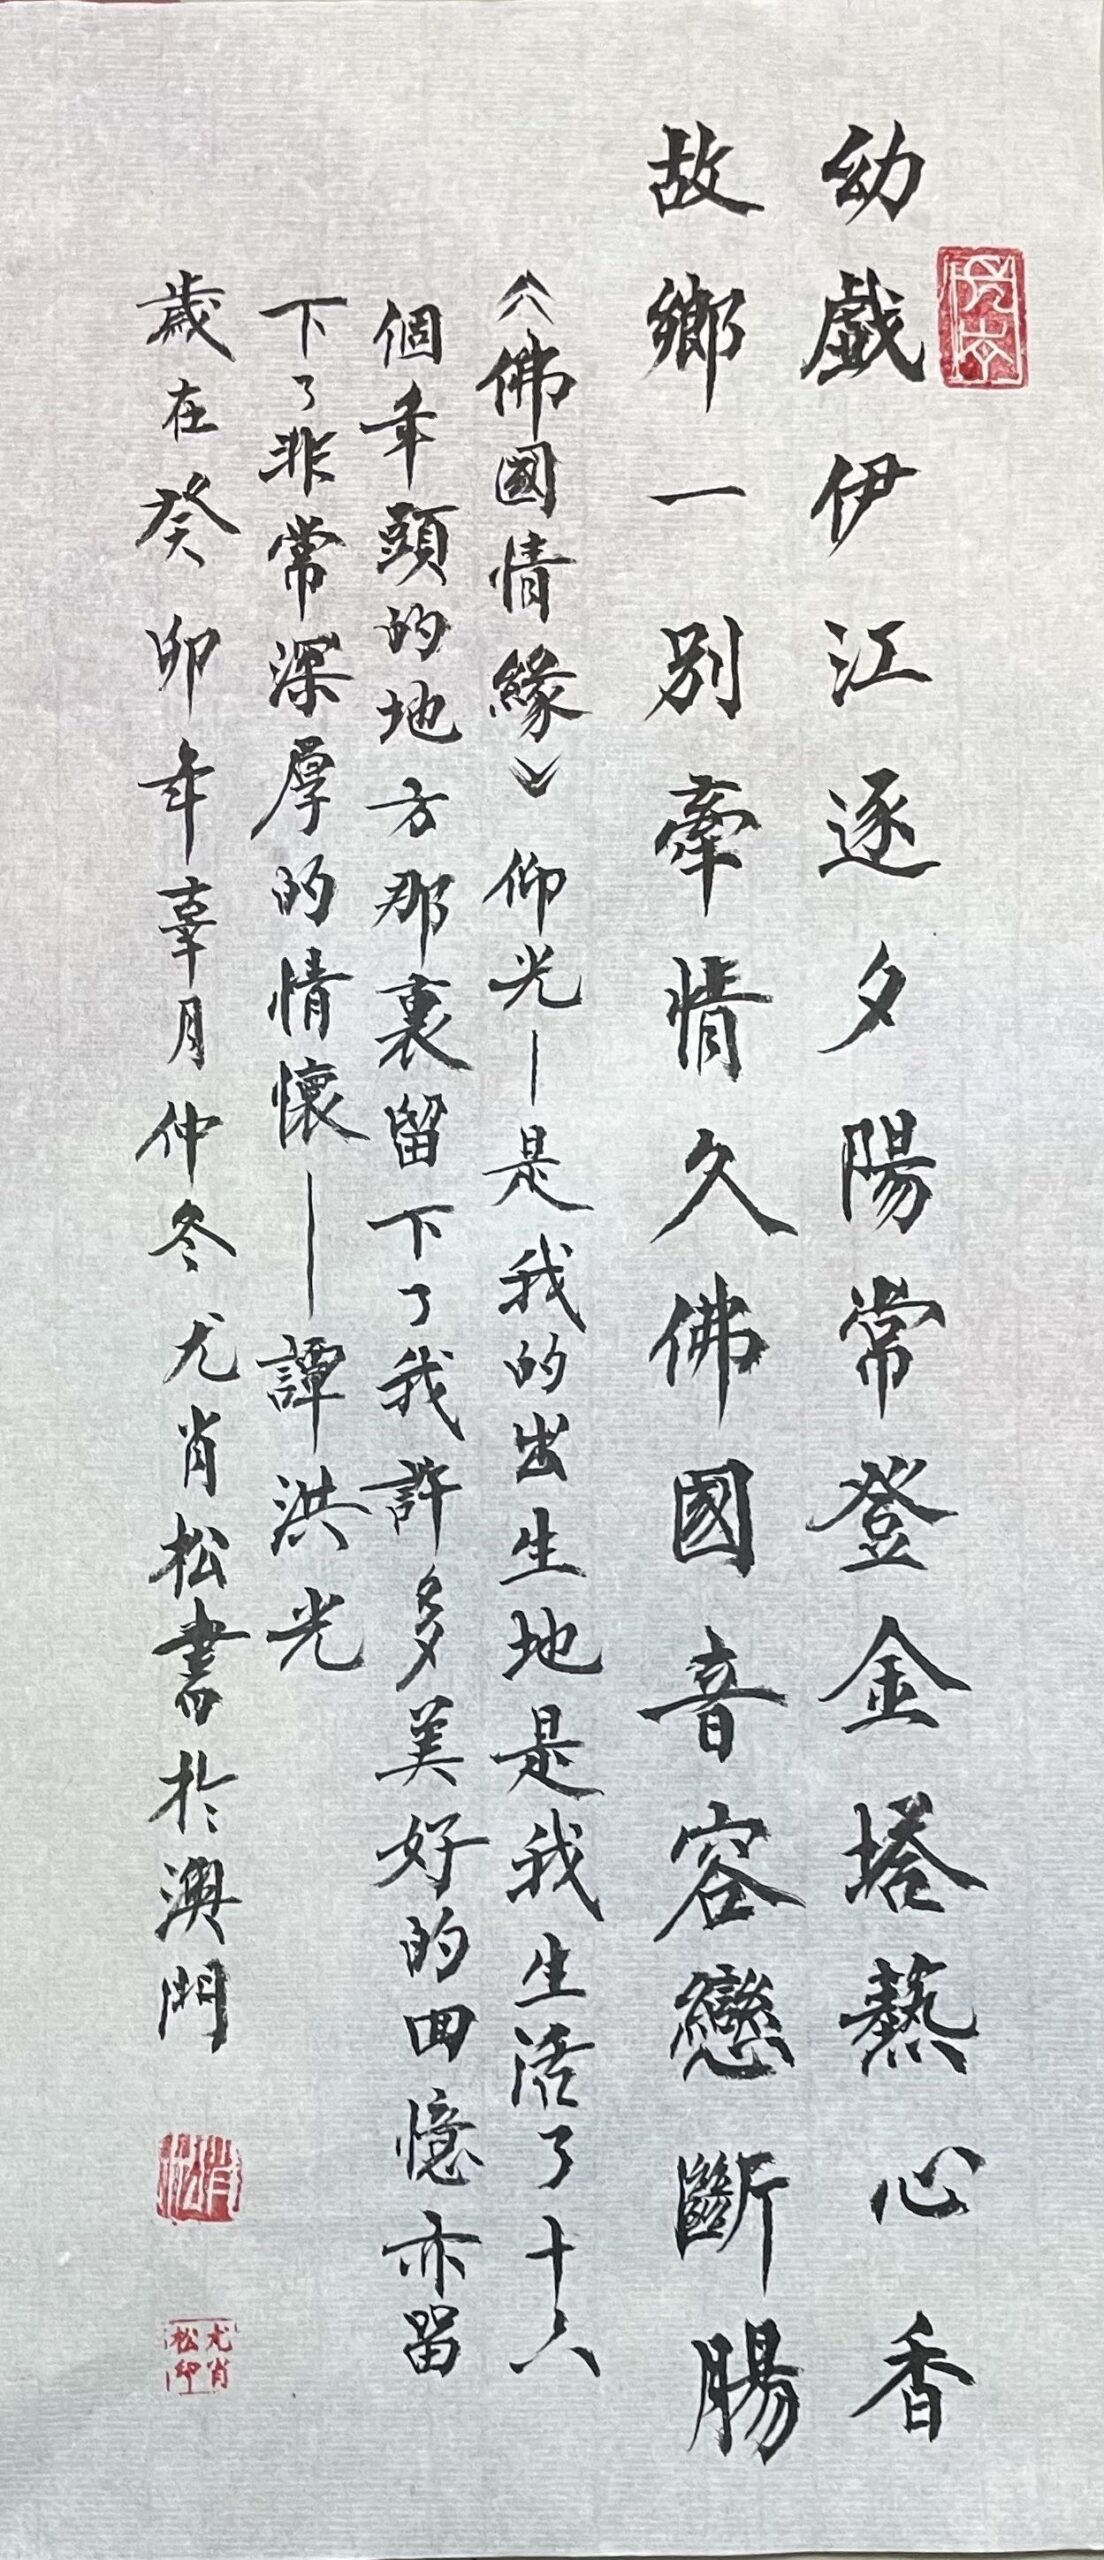 幼戲伊江逐夕陽常登金塔爇心香
故鄉一別牽情久佛國音容戀斷腸
《佛國情緣》仰光—是我的出生地是我生活了十六
個年頭的地方那裏留下了我許多美好的回憶亦留
下了非常深厚的情懷——譚洪光
歲在癸卯年辜月仲冬尤肖松書於澳門
肖松
尤肖松印